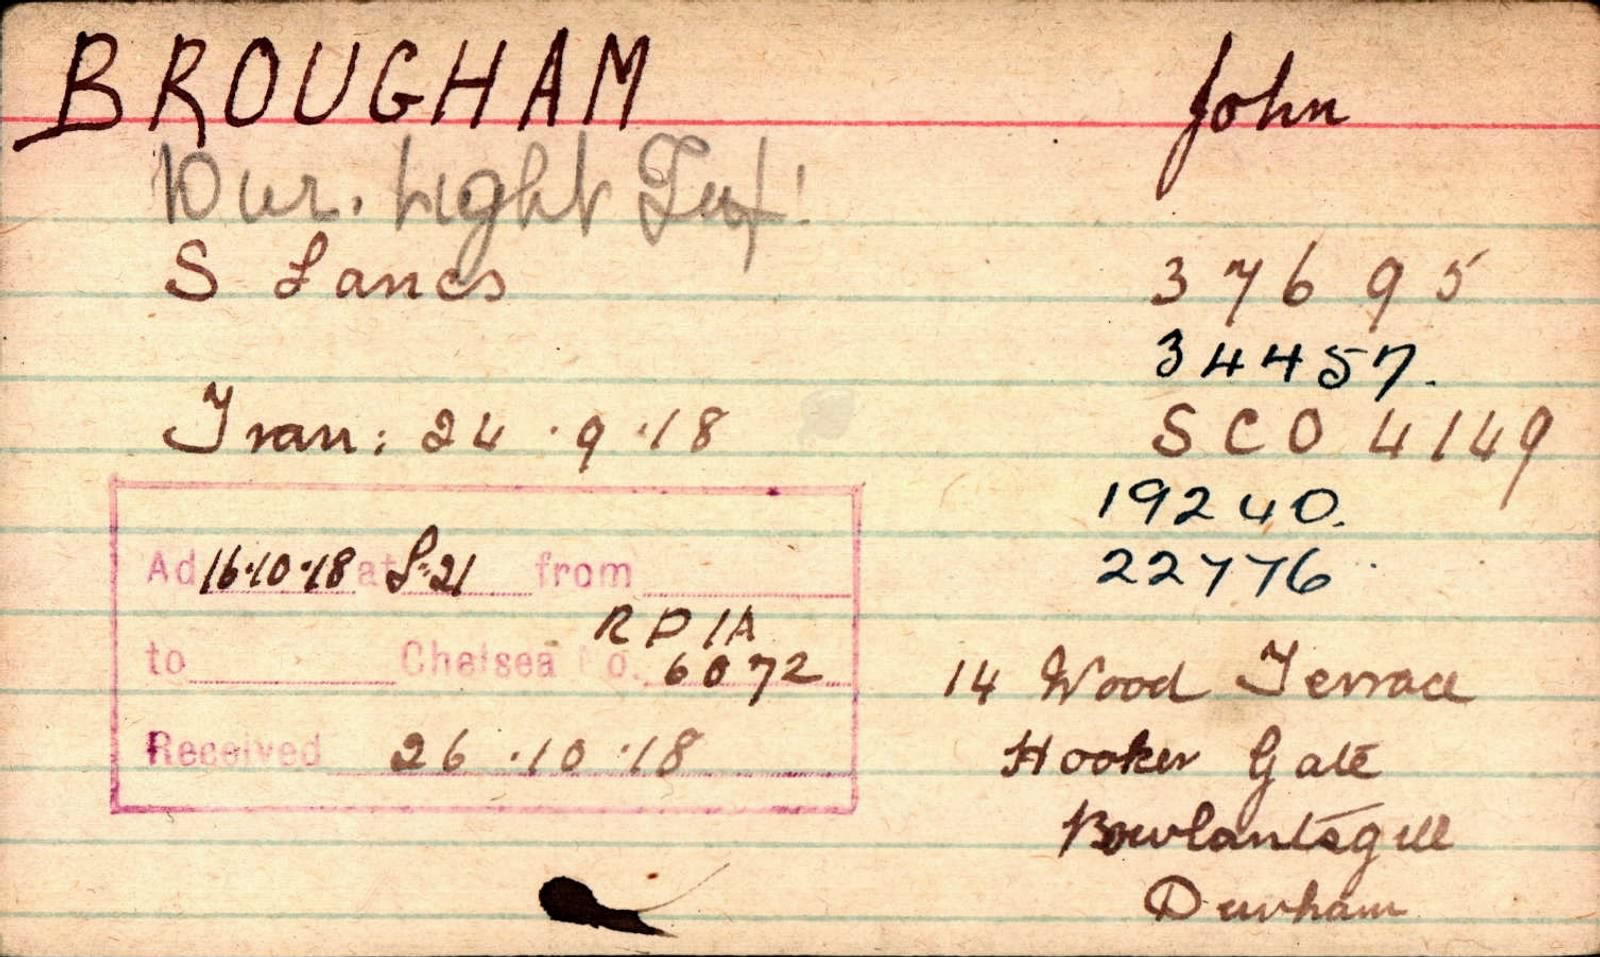 BROUGHAM John
Dur. Light Inf!
S Lancs 37695
34457.
Tran: 24.9.18 SCO 4149
19240.
22776
Ad 16.10.18 at S.21 from
RD1A
to Chelsea No. 6072
14 Wood Terrace
Received 26.10.18
Hooker Gate
Rowlantsgill
Durham